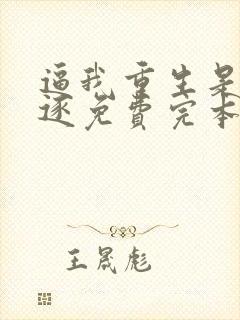 逼我重生是
逐免费完本
王晟彪